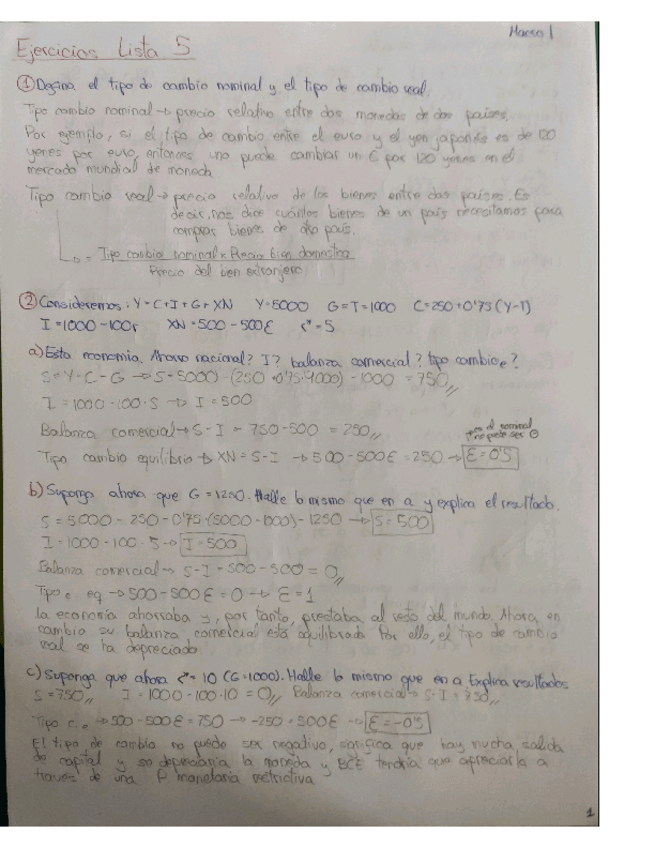 Macro 1
Ejercicios Lista 5
① Defina el tipo de cambio nominal y el tipo de cambio real.
Tipo cambio nominal → precio relativo entre dos monedas de dos países.
Por ejemplo, si el tipo de cambio entre el euro y el yen japonés es de 120
yenes por euro, entonces uno puede cambiar un € por 120 yenes en el
mercado mundial de moneda
Tipo cambio real → precio relativo de los bienes entre dos países. Es
decir, nos dice cuántos bienes de un país necesitamos para
comprar bienes de otro país.
→ = Tipo cambio nominal × Precio bien doméstico
Precio del bien extranjero
② Consideremos: Y=C+I+G+XN Y=5000 G=T=1000 C=250+0'75(Y-T)
I=1000-100r XN=500-500Ɛ r*=5
a) Esta economía. Ahorro nacional? I? balanza comercial? tipo cambio e?
S=Y-C-G → S=5000-(250+0'75·4000)-1000=750
I=1000-100·5 → I=500
Balanza comercial → S-I = 750-500=250
el nominal
no puede ser ⊖
Tipo cambio equilibrio → XN=S-I → 500-500Ɛ=250 → Ɛ=0'5
b) Suponga ahora que G=1250. Halle lo mismo que en a y explica el resultado.
S=5000-250-0'75·(5000-1000)-1250 → S=500
I=1000-100·5 → I=500
Balanza comercial → S-I=500-500=0
Tipo c eq → 500-500Ɛ=0 → Ɛ=1
la economía ahorraba y, por tanto, prestaba al resto del mundo. Ahora, en
cambio su balanza comercial está equilibrada. Por ello, el tipo de cambio
real se ha depreciado
c) Suponga que ahora r*=10 (G=1000). Halle lo mismo que en a. Explica resultados
S=750 I=1000-100·10=0 Balanza comercial → S-I=750
Tipo c. e → 500-500Ɛ=750 → -250=500Ɛ → Ɛ=-0'5
El tipo de cambio no puede ser negativo, significa que hay mucha salida
de capital y se depreciaría la moneda y BCE tendría que apreciarla a
través de una P monetaria restrictiva
1